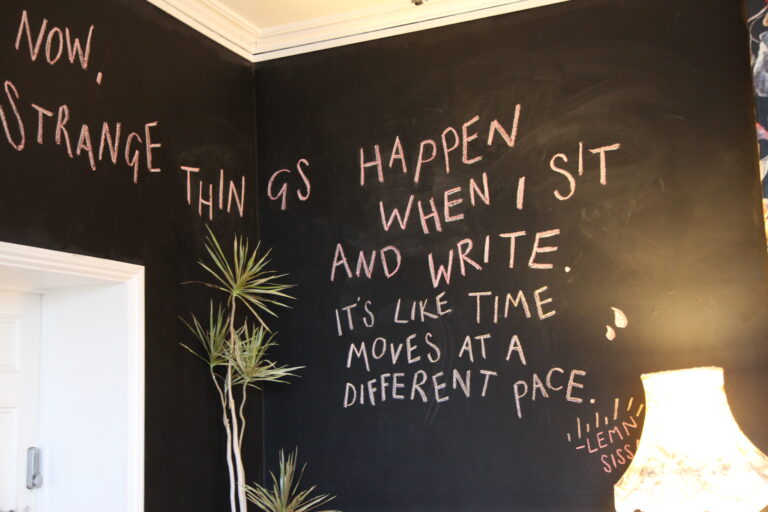 NOW,
STRANGE THINGS HAPPEN
WHEN I SIT
AND WRITE.
IT'S LIKE TIME
MOVES AT A
DIFFERENT PACE.
-LEMN